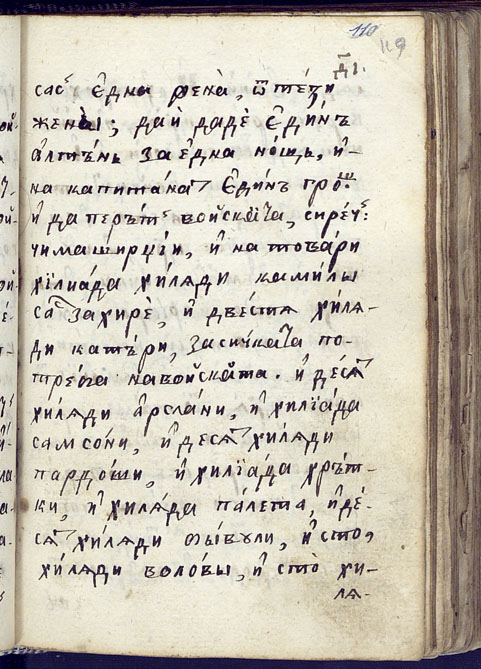 110
119
д҃і.
сасъ є҆дна женà, ѿ те́зи
жены̀; да и дадѐ є҆ди́нъ
а҆лтъ́нь за є҆дна нощь, и҆-
на капита́натъ є҆ди́нъ грош.
и҆ да перъ́тъ войска́та, сиречъ:
чимаширџѝи, и҆ на товари
хїлиа́да хи́ляди камилы
са захирѐ, и҆ двестѧ хи́лѧ-
ди катъ́ри, засичката по-
тре́ба на войската. и҆ десѧт
хи́лѧди а҆рсла́ни, и҆ хилїа́да
самсо́ни, и҆ десѧт хи́лѧди
пардо́ши, и҆ хилїа́да хръ́т-
ки, и҆ хилѧ́да па́лета, и҆ де́-
сѧт хи́лѧди бы́воли, и҆ сто̀,
хи́лѧди воловы, и҆ сто̀ хи-
лѧ-